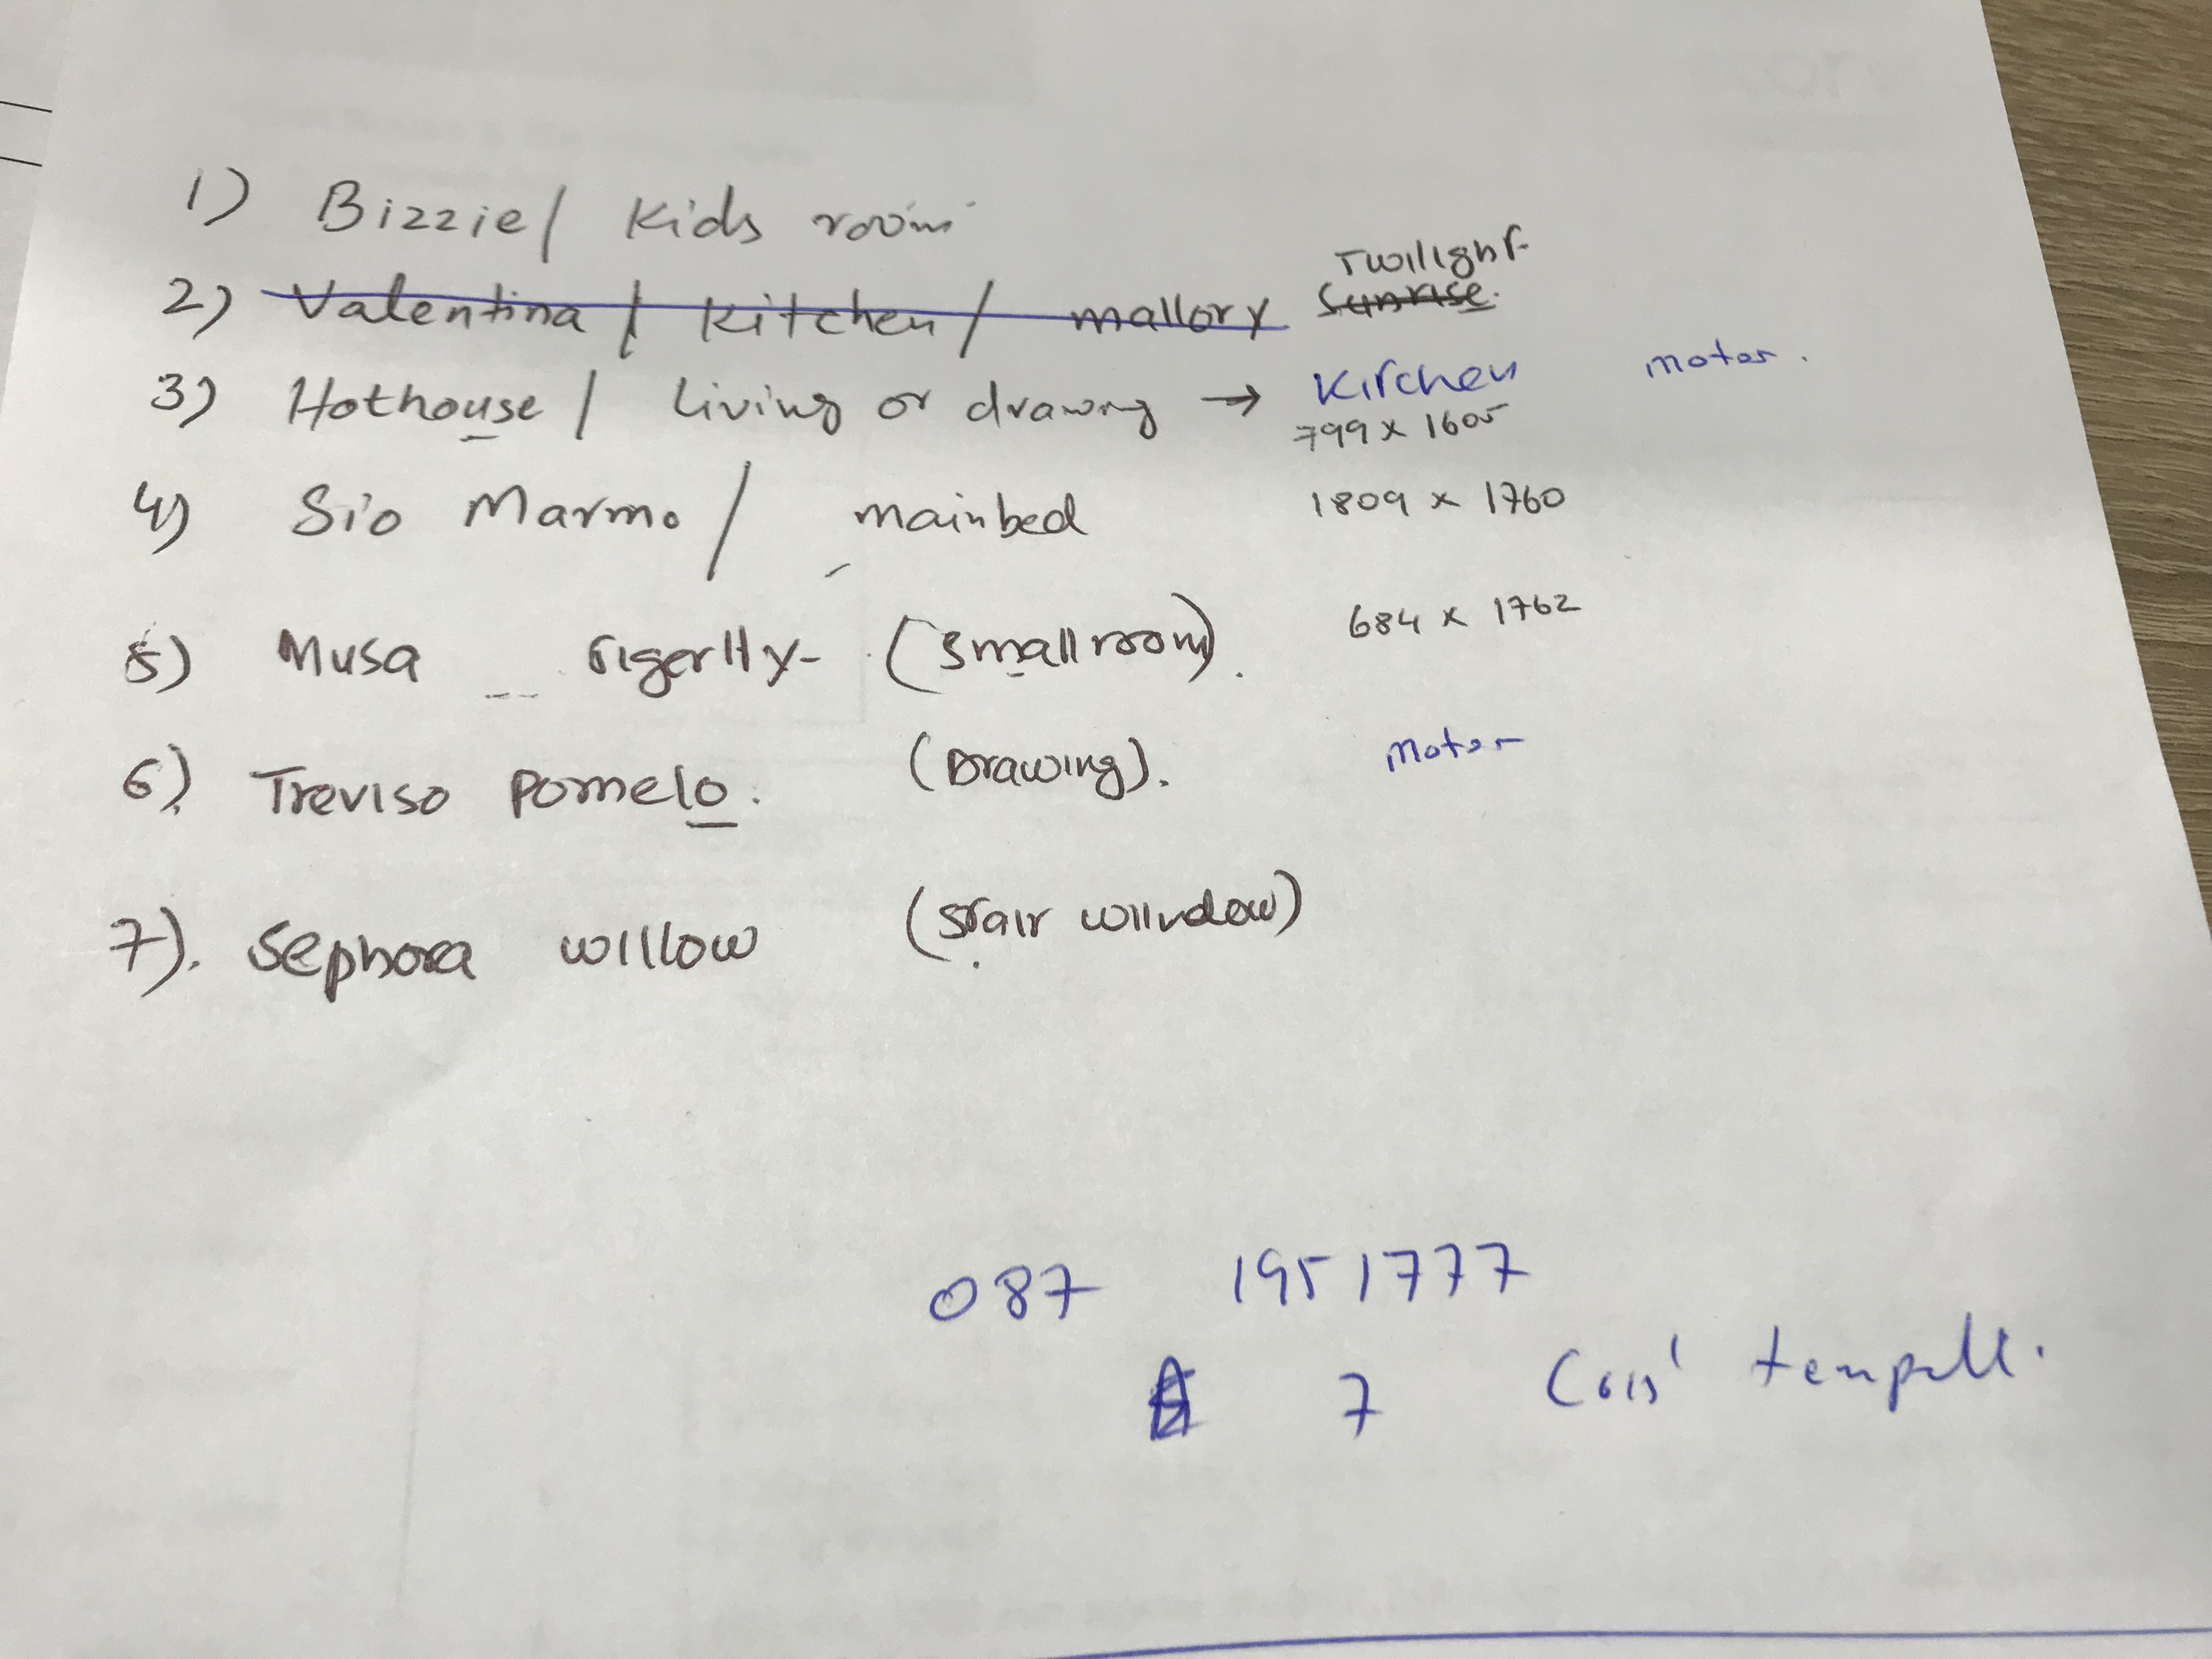 1) Bizzie / Kids room
Twilight
2) Valentina / Kitchen / mallory Sunrise.
3) Hothouse / living or drawing → Kitchen motor.
799 x 1605
4) Sio Marmo / mainbed 1809 x 1760
5) Musa Tigerlly - (Small room). 684 x 1762
6) Treviso Pomelo. (Drawing). Motor
7). Sephora willow (Stair window)
087 1951777
7